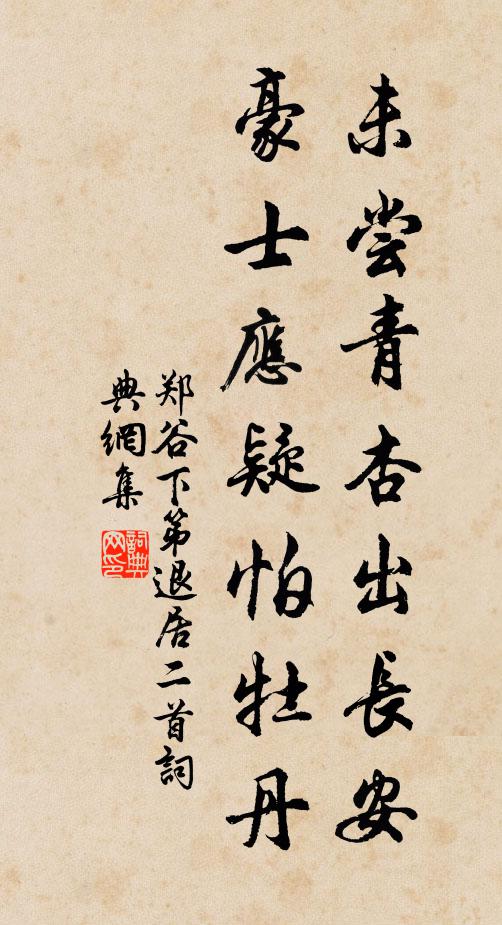 未尝青杏出長安
豪士應疑怕牡丹
郑谷下第退居二首詞
典網集
詞典网印